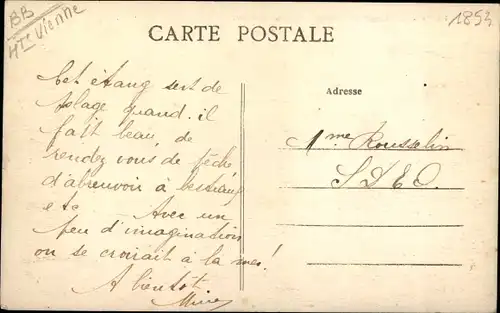 BB
Hte Vienne
1854
CARTE POSTALE
Cet étang sert de
plage quand il
fait beau, de
rendez vous de pêche
d'abreuvoir à bestiaux
etc _ Avec un
peu d'imagination
on se croirait à la mer!
A bientôt
Adresse
Mme Rousselin